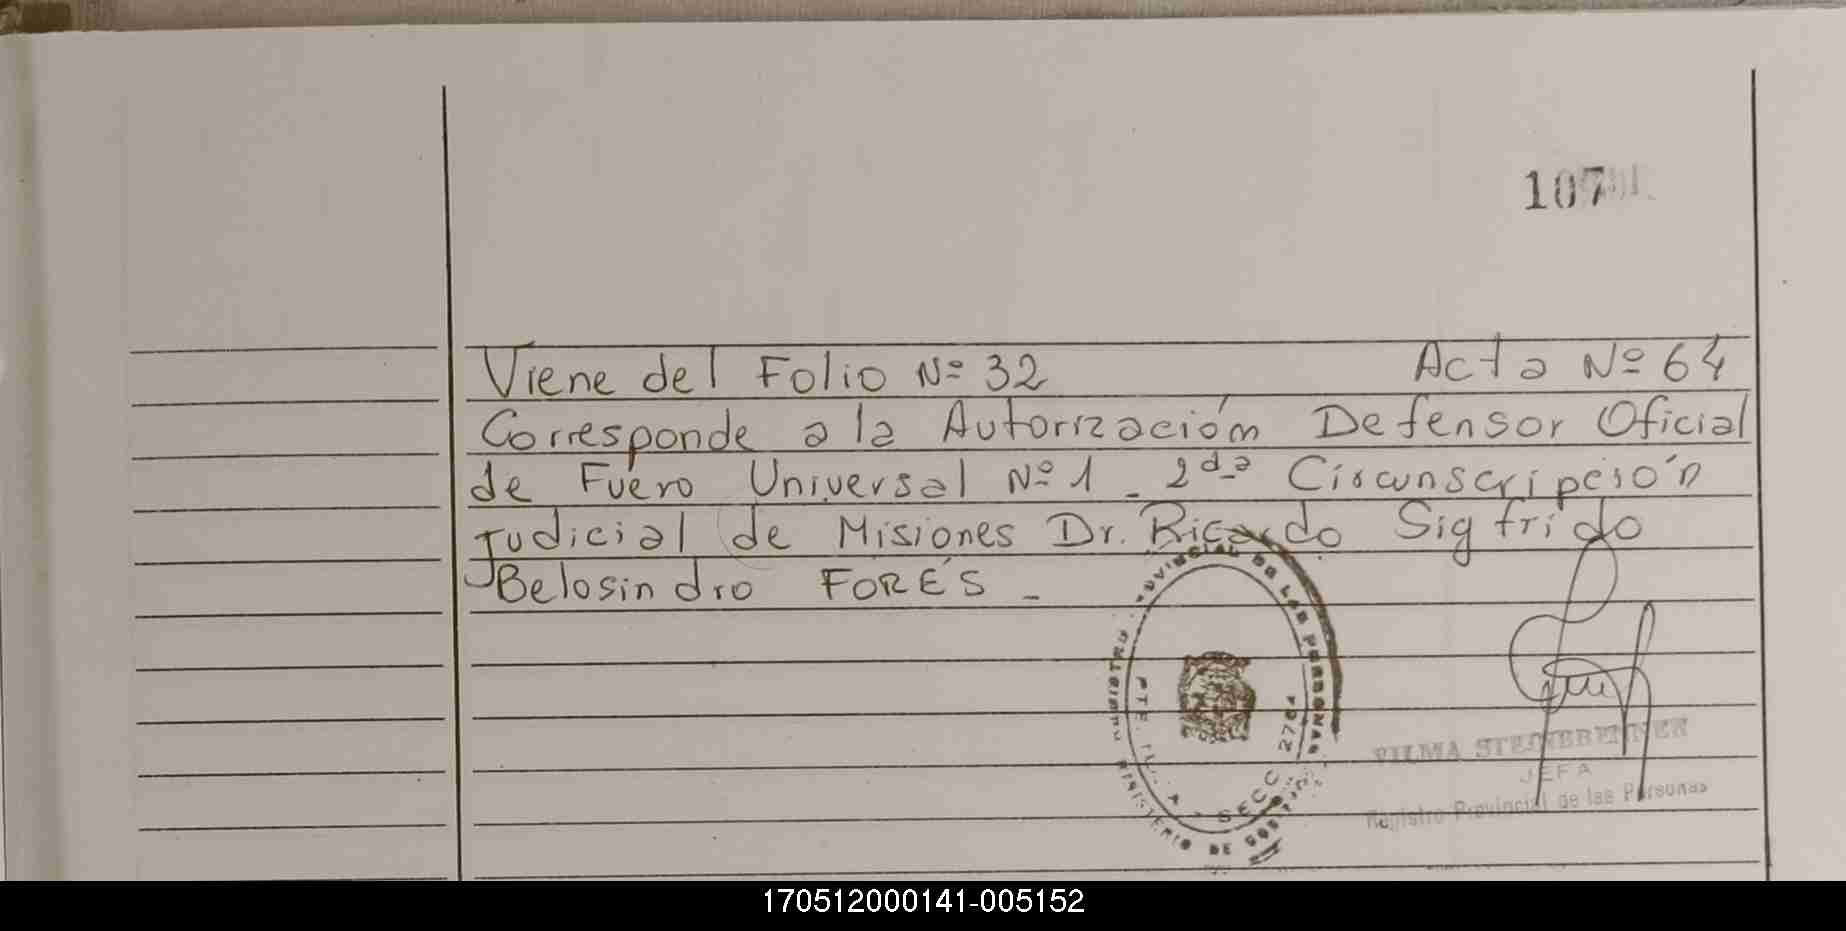 107
Viene del Folio Nº 32 Acta Nº 64
Corresponde a la Autorización Defensor Oficial
de Fuero Universal Nº 1 - 2da Circunscripción
Judicial de Misiones Dr. Ricardo Sigfrido
Belosindro FORÉS -
REGISTRO PROVINCIAL DE LAS PERSONAS
MINISTERIO DE
SECC 2764
VILMA
JEFA
Registro Provincial de las Personas
170512000141-005152